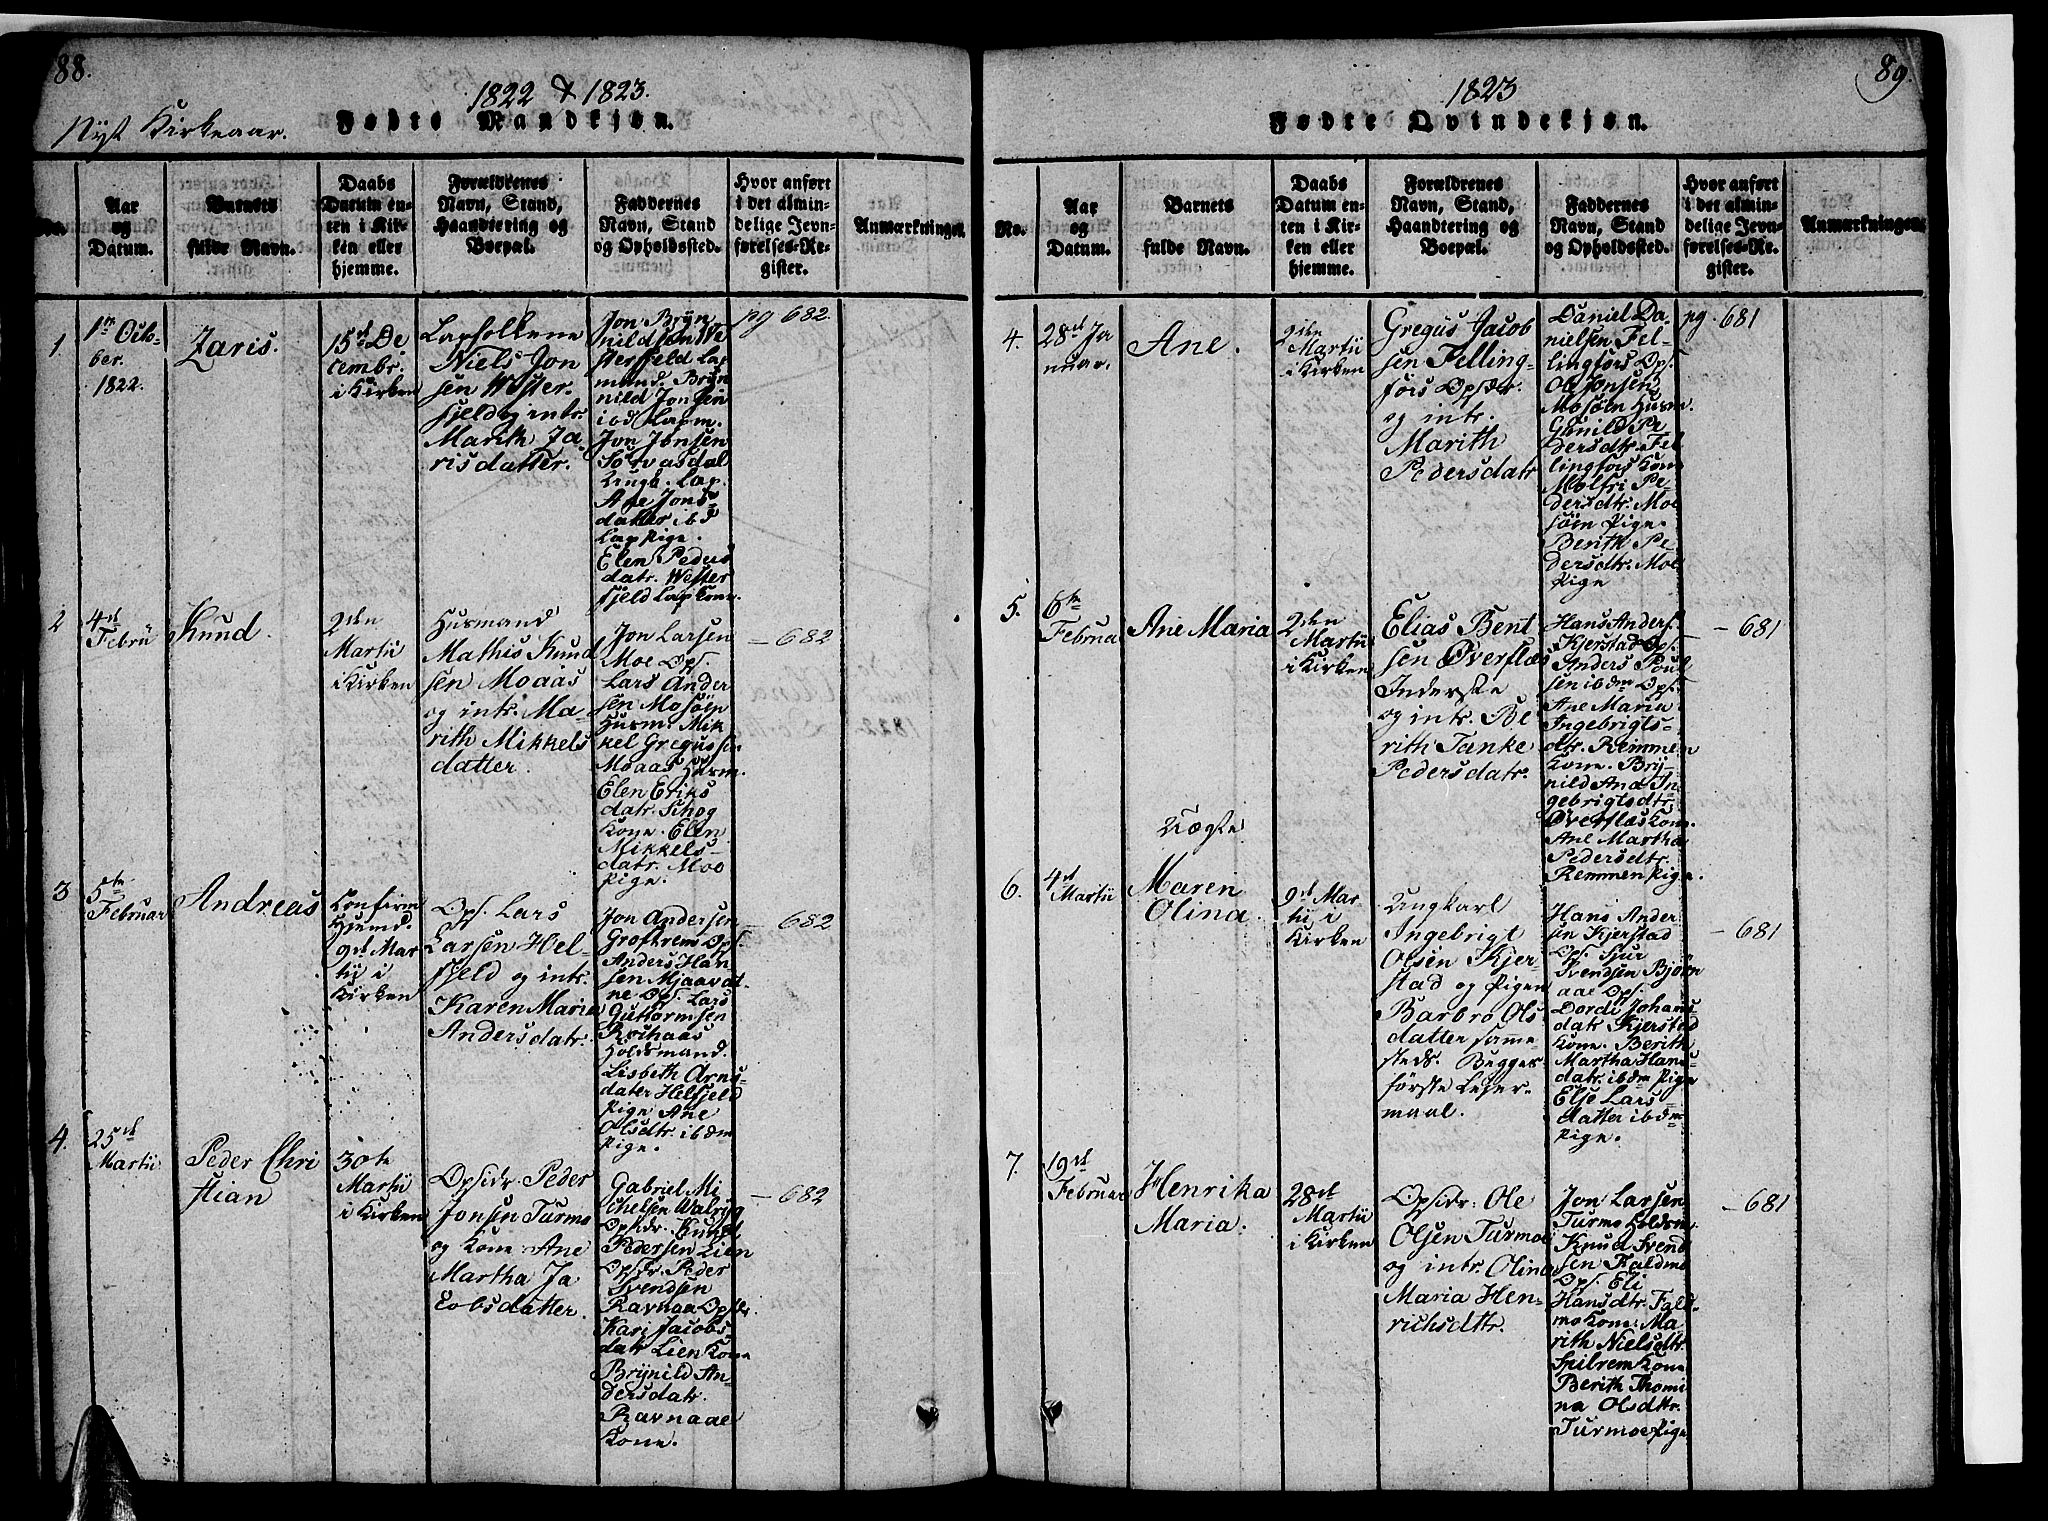 88.
1822 & 1823.
Nyt Kirkeaar.
Fødte Mandkjøn.
No.
Aar
og
Datum.
Barnets
fulde Navn.
Daabs
Datum en-
ten i Kir-
ken eller
hjemme.
Forældrenes
Navn, Stand,
Haandtering og
Boepæl.
Faddernes
Navn, Stand
og Opholdssted.
Hvor anført
i det almin-
delige Jevn-
førelses-Re-
gister.
Anmærkninger.
1.
1n Octo-
ber.
1822.
Zaris.
15d De
cembr.
i Kirken
Lapfolkene
Niels Jon
sen Wester-
fjeld og intr.
Marith Ja-
risdatter.
Jon Bryn
nildsøn We
sterfjeld Lap
mand. Bryn
nild Jonsen
ibd Lapm.
Jon Jonsen
Sørvasdal
Ungk. Lap.
Ane Jons
datter ibd
Lap Pige.
Elen Peders
datr. Wester
fjeld Lap Kone.
pg 682.
2
4d
Febru
Knud.
2den
Martii
i Kirken
Husmand
Mathis Knud
sen Moaas
og intr. Ma-
rith Mikkels
datter.
Jon Larsen
Moe Ops.
Lars Ander
sen Mosøen
Husm. Mik
kel Gregussen
Moaas Husm.
Elen Eriks
datr. Skog
Kone. Elen
Mikkels-
datr. Moe
Pige.
- 682
3
5te
Februar
Andreas
Confirm
Hjemd.
9d Mar
tii i
Kirken
Ops. Lars
Larsen Hel-
fjeld og intr.
Karen Maria
Andersdatr.
Jon Andersen
Groftrem Ops.
Anders Han
sen Mjaavat
ne Ops. Lars
Guttormsen
Roshaas
Holdsmand.
Lisbeth Arns-
dater Helfjeld
Pige Ane
Olsdtr. ibdm
Pige.
- 682
4.
25d
Martii
Peder Chri
stian
30te
Martii
i Kirken
Opsidr. Peder
Jonsen Turmo
og Kone Ane
Martha Ja
cobsdatter.
Gabriel Mi
chelsen Walryg
Opsidr. Knud
Pedersen Lien
Opsdr. Peder
Svendsen
Ravnaa Opsdr.
Kari Jacobs
datr Lien Kone
Brynild An-
dersdatr.
Ravnaae
Kone.
- 682
89.
1823
Fødte Qvindekjøn.
No.
Aar
og
Datum.
Barnets
fulde Navn.
Daabs
Datum en-
ten i Kir-
ken eller
hjemme.
Forældrenes
Navn, Stand,
Haandtering og
Boepæl.
Faddernes
Navn, Stand
og Opholdssted.
Hvor anført
i det almin-
delige Jevn-
førelses-Re-
gister.
Anmærkninger.
4.
28d Ja
nuar.
Ane.
2den
Martii
i Kirken
Gregus Jacob
sen Felling-
fors Opsdr.
og intr.
Marith
Pedersdatr
Daniel Da-
nielsen Fel-
lingfors Ops.
Ole Jonsen
Mosøen Husm.
Gunild Pe
dersdtr. Fel
lingfors Kone
Molfri Pe-
dersdtr. Moe
søen Pige.
Berith Pe-
dersdtr. Moe
Pige
pg. 681
5.
6te
Februa
Ane Maria
2den
Martii
i Kirken
Elias Bent
sen Øverflæs
Inderste
og intr. Be
rith Tanke
Pedersdatr.
Hans Anders.
Kjerstad Ops.
Anders Poul
sen ibdm Ops.
Ane Maria
Ingebrigts-
dtr. Remmen
Kone. Bry-
nild Ana In
gebrigtsdtr
Øverflæs Kone.
Ane Martha
Pedersdtr.
Remmen Pige.
- 681
Uægte
6.
4d
Martii
Maren
Olina.
9d Mar-
tii i
Kirken
Ungkarl
Ingebrigt
Olsen Kjer-
stad og Pigen
Barbro Ols
datter same-
steds. Begges
første Leier-
maal.
Hans Ander
sen Kjerstad
Ops. Sjur
Svendsen Bjørn
aae Ops.
Dordi Johans
datr Kjerstad
Kone. Berith
Martha Hans
datr. ibdm Pige
Else Lars
datter ibdm
Pige.
- 681
7.
19d
Februar
Henrika
Maria.
28d
Martii
i Kirken
Opsidr: Ole
Olsen Turmoe
og intr. Olina
Maria Hen-
richsdtr.
Jon Larsen
Turmo Holdsm
Knud Svend
sen Faldmo
Ops. Eli
Hansdtr. Fald
mo Kone. Ma
rith Nielsdtr.
Spilrem Kone
Berith Thomi
na Olsdtr.
Turmoe Pige
- 681